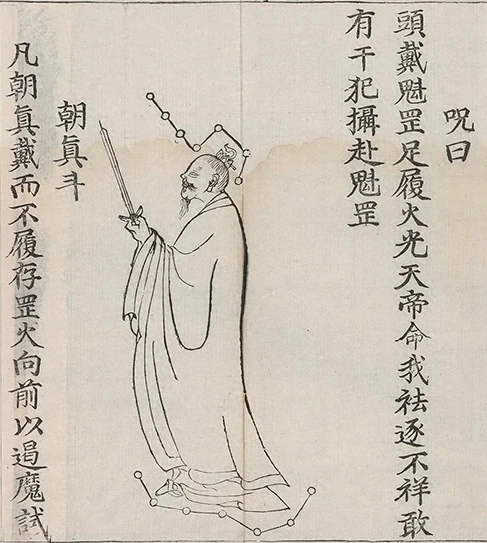 呪曰
頭戴魁罡足履火光天帝命我祛逐不祥敢
有干犯攝赴魁罡
朝真斗
凡朝真戴而不履存罡火向前以遏魔試